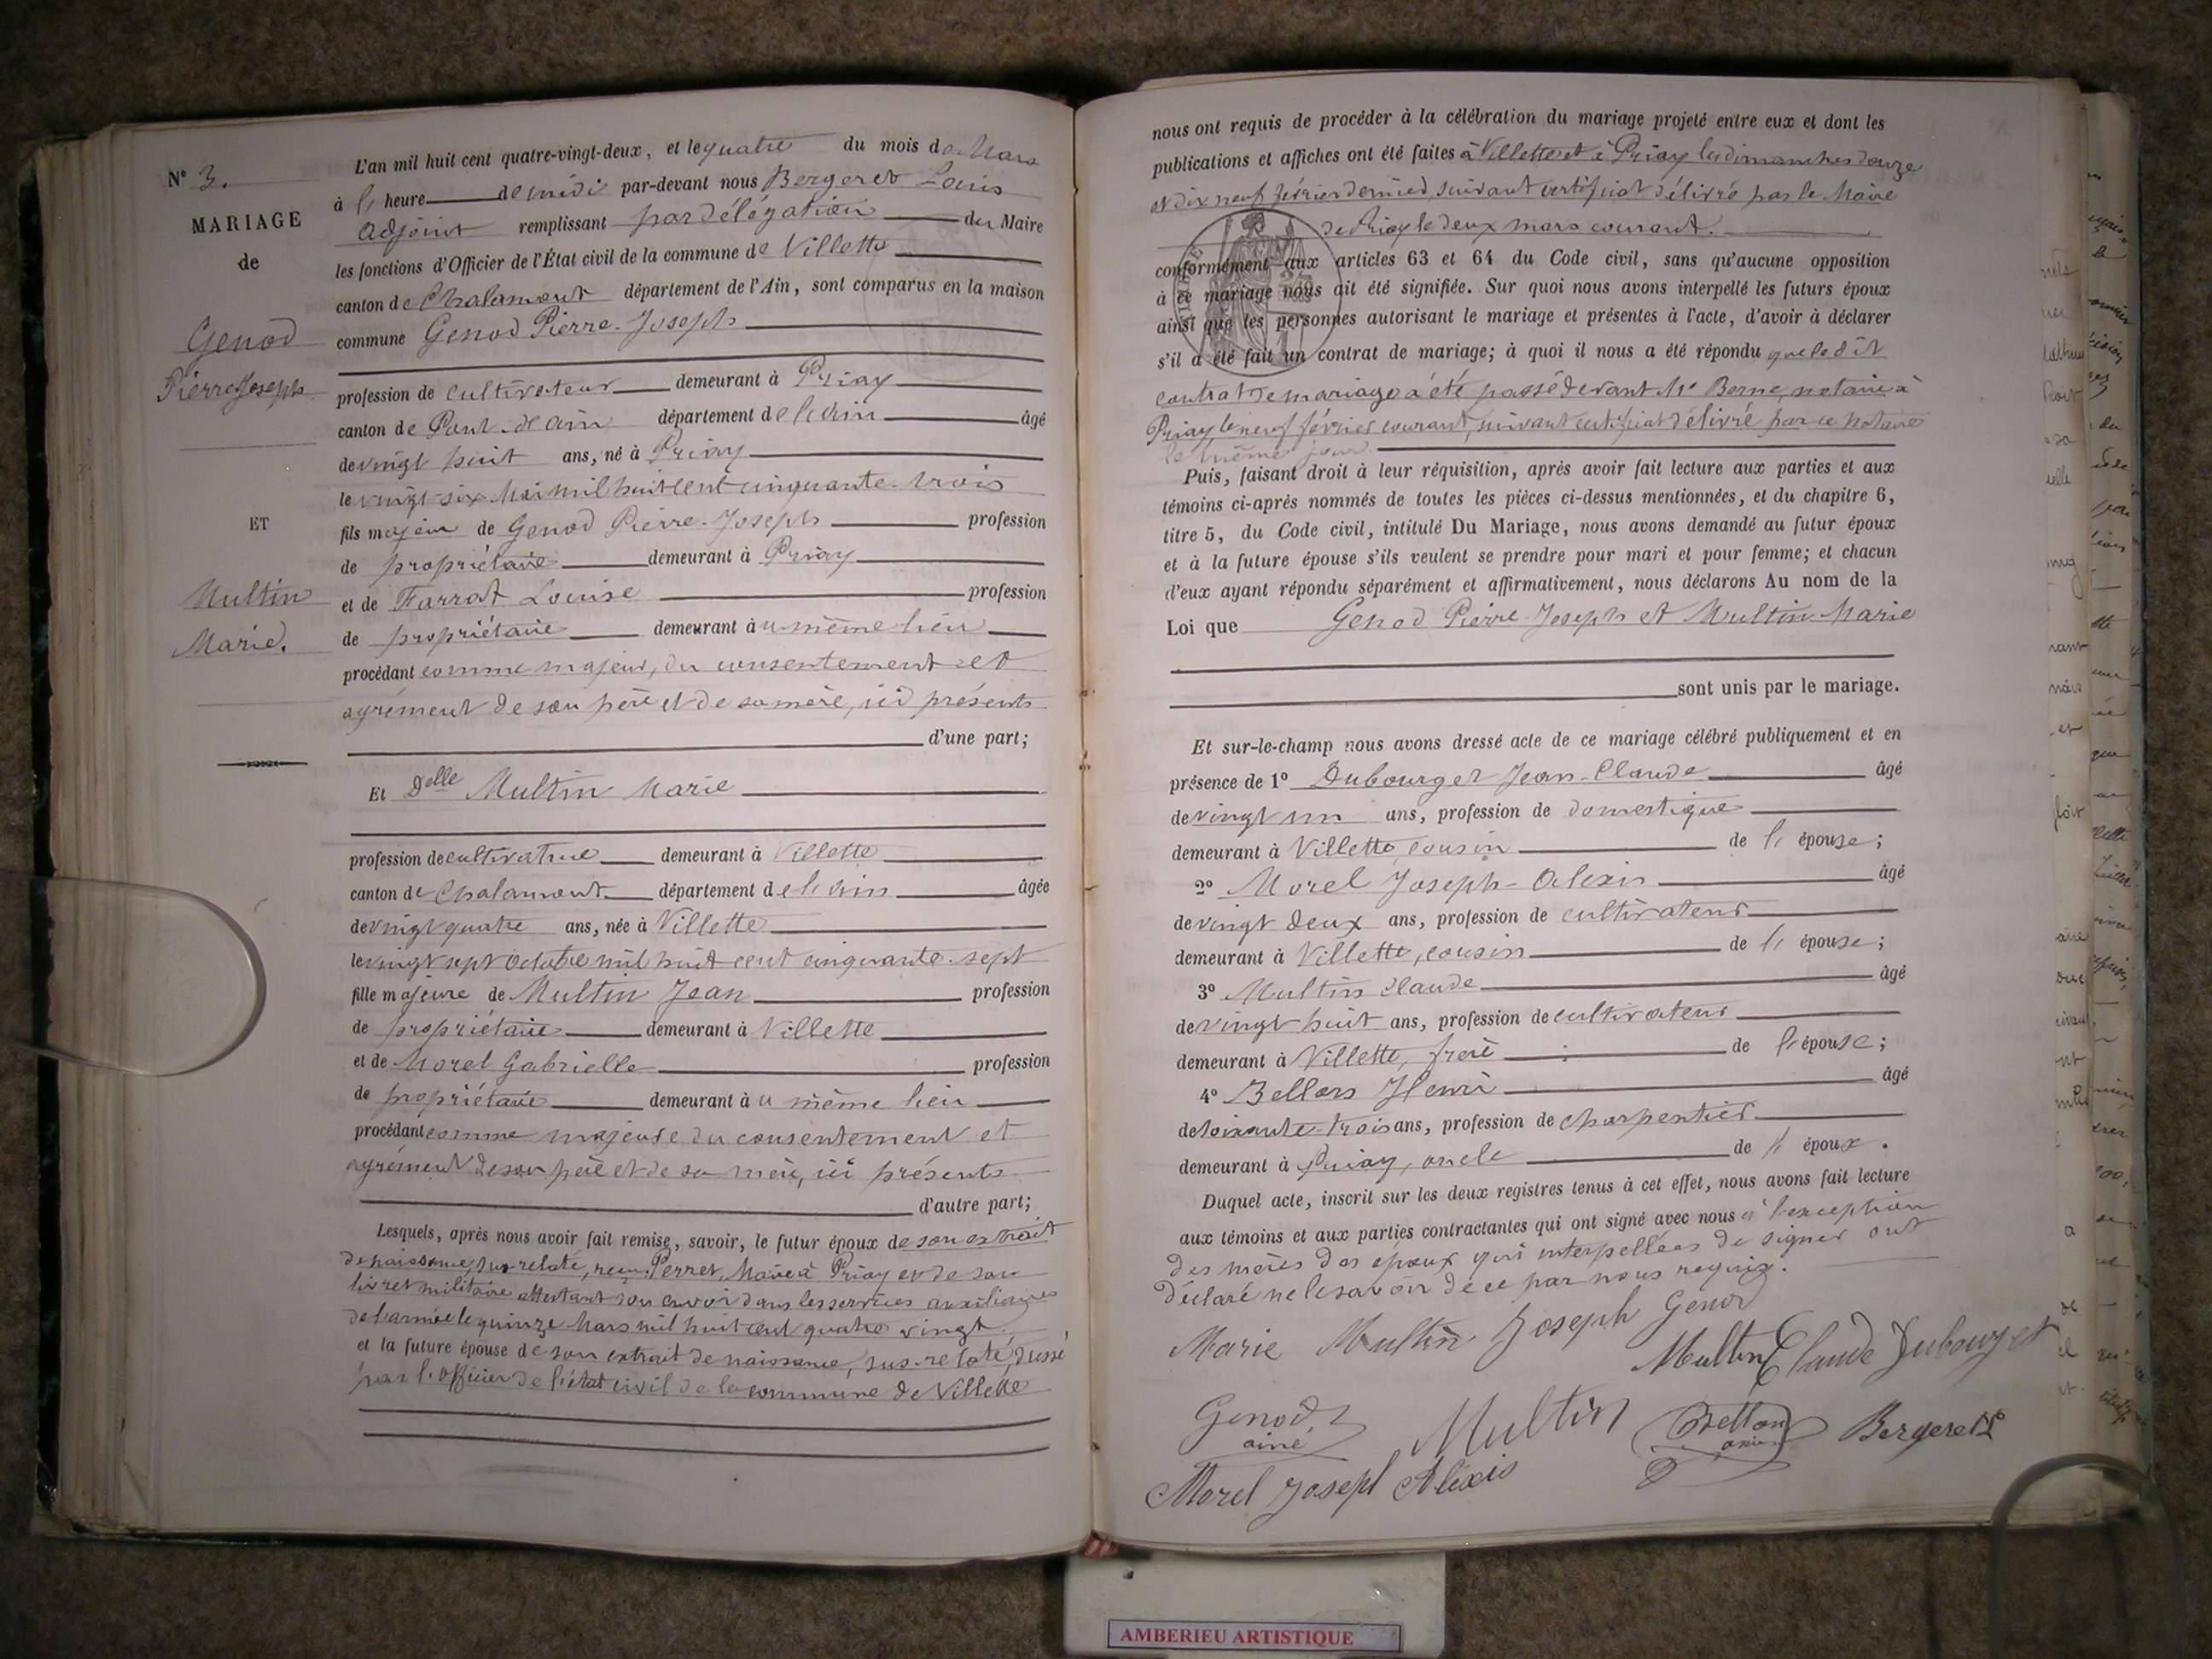 N° 3.
MARIAGE
de
Genod
Pierre Joseph
ET
Multin
Marie.
L'an mil huit cent quatre-vingt-deux, et le quatre du mois de Mars
à l' heure de midi par-devant nous Bergeret Louis
adjoint remplissant par délégation du Maire
les fonctions d'Officier de l'État civil de la commune de Villette
canton de Chalamont département de l'Ain, sont comparus en la maison
commune Genod Pierre-Joseph
profession de cultivateur demeurant à Priay
canton de Pont-d'ain département de l'ain âgé
de vingt huit ans, né à Priay
le vingt-six Mai mil huit cent cinquante-trois
fils majeur de Genod Pierre-Joseph profession
de propriétaire demeurant à Priay
et de Farrat Louise profession
de propriétaire demeurant au même lieu
procédant comme majeur, du consentement et
agrément de son père et de sa mère, ici présents
d'une part;
Et Delle Multin Marie
profession de cultivatrice demeurant à Villette
canton de Chalamont département de l'ain âgée
de vingt quatre ans, née à Villette
le vingt sept octobre mil huit cent cinquante-sept
fille majeure de Multin Jean profession
de propriétaire demeurant à Villette
et de Morel Gabrielle profession
de propriétaire demeurant au même lieu
procédant comme majeure du consentement et
agrément de son père et de sa mère, ici présents
d'autre part;
Lesquels, après nous avoir fait remise, savoir, le futur époux de son extrait
de naissance, sus-relaté, reçu Perret, Maire à Priay et de son
livret militaire attestant son envoi dans les services auxiliaires
de l'armée le quinze Mars mil huit cent quatre vingt
et la future épouse de son extrait de naissance, sus-relaté, dressé
par l'officier de l'état civil de la commune de Villette
nous ont requis de procéder à la célébration du mariage projeté entre eux et dont les
publications et affiches ont été faites à Villette et à Priay les dimanches douze
et dix neuf février dernier, suivant certificat délivré par le Maire
de Priay le deux mars courant.
conformément aux articles 63 et 64 du Code civil, sans qu'aucune opposition
à ce mariage nous ait été signifiée. Sur quoi nous avons interpellé les futurs époux
ainsi que les personnes autorisant le mariage et présentes à l'acte, d'avoir à déclarer
s'il a été fait un contrat de mariage; à quoi il nous a été répondu que le dit
contrat de mariage a été passé devant Me Berne, notaire à
Priay, le neuf février courant, suivant certificat délivré par ce notaire
le même jour.
Puis, faisant droit à leur réquisition, après avoir fait lecture aux parties et aux
témoins ci-après nommés de toutes les pièces ci-dessus mentionnées, et du chapitre 6,
titre 5, du Code civil, intitulé Du Mariage, nous avons demandé au futur époux
et à la future épouse s'ils veulent se prendre pour mari et pour femme; et chacun
d'eux ayant répondu séparément et affirmativement, nous déclarons Au nom de la
Loi que Genod Pierre-Joseph et Multin Marie
sont unis par le mariage.
Et sur-le-champ nous avons dressé acte de ce mariage célébré publiquement et en
présence de 1° Dubourget Jean-Claude âgé
de vingt un ans, profession de domestique
demeurant à Villette, cousin de l' épouse;
2° Morel Joseph-Alexis âgé
de vingt deux ans, profession de cultivateur
demeurant à Villette, cousin de l' épouse;
3° Multin Claude âgé
de vingt huit ans, profession de cultivateur
demeurant à Villette, frère de l'épouse;
4° Henri âgé
de soixante-trois ans, profession de charpentier
demeurant à Priay, oncle de l' époux.
Duquel acte, inscrit sur les deux registres tenus à cet effet, nous avons fait lecture
aux témoins et aux parties contractantes qui ont signé avec nous à l'exception
des mères des époux qui interpellées de signer ont
déclaré ne le savoir de ce par nous requis.
Marie Multin Joseph Genod
Multin Claude Dubourget
Genod ainé Multin Bergeret
Morel Joseph Alexis
AMBERIEU ARTISTIQUE